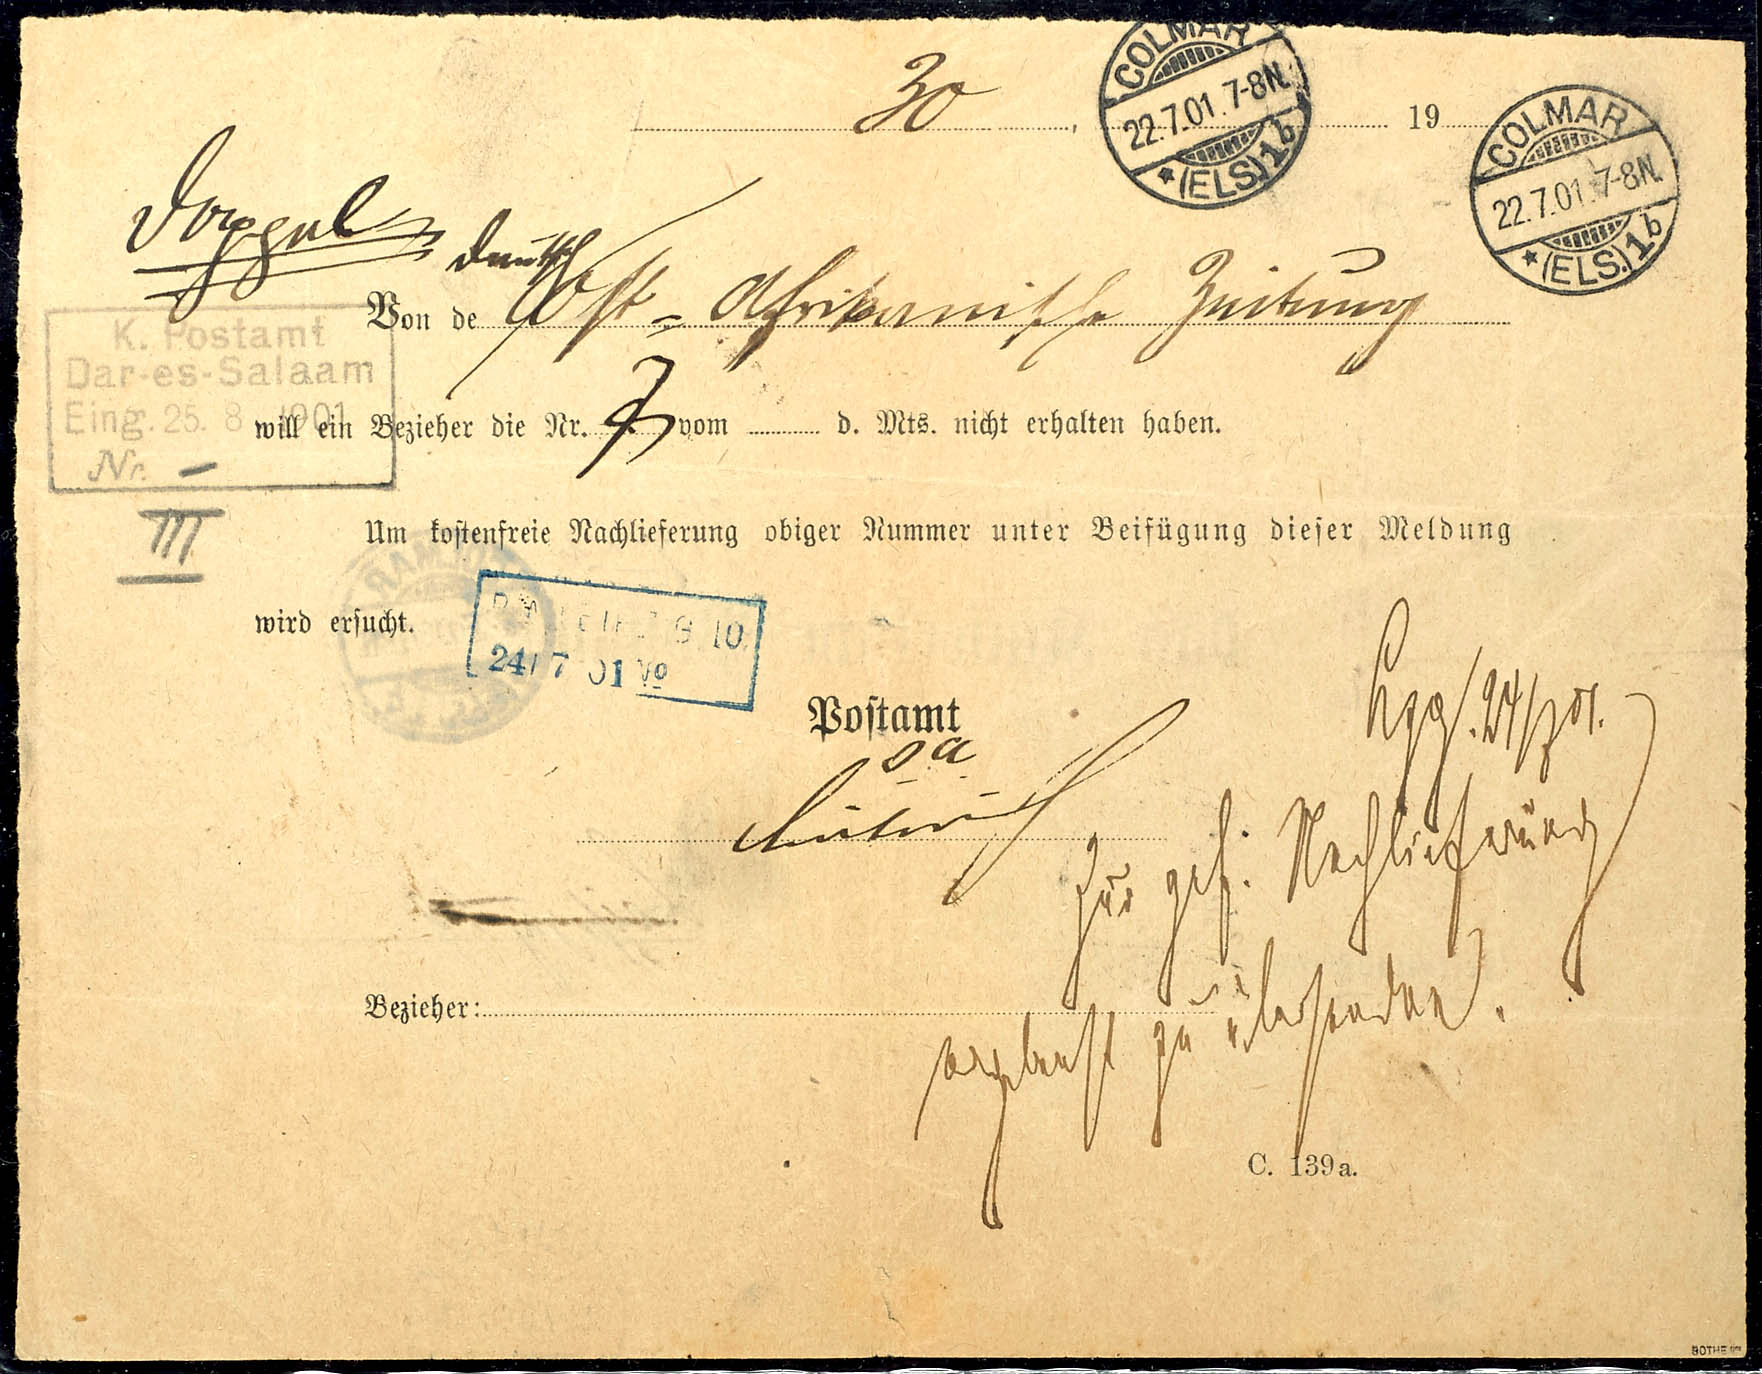 30
COLMAR
22.7.01. 7-8N.
* (ELS.) 1b
19
COLMAR
22.7.01. 7-8N.
* (ELS.) 1b
Doppel
Deutsch
Von de Ost-Afrikanische Zeitung
K. Postamt
Dar-es-Salaam
Eing. 25. 8. 1901
Nr. –
will ein Bezieher die Nr. vom d. Mts. nicht erhalten haben.
III
Um kostenfreie Nachlieferung obiger Nummer unter Beifügung dieser Meldung
wird ersucht.
10.
24/7 01 Vo
Postamt
Lpzg. 24/7 01.
Zur gef. Nachlieferung
ergebenst zu übersenden.
Bezieher:
C. 139a.
BOTHE